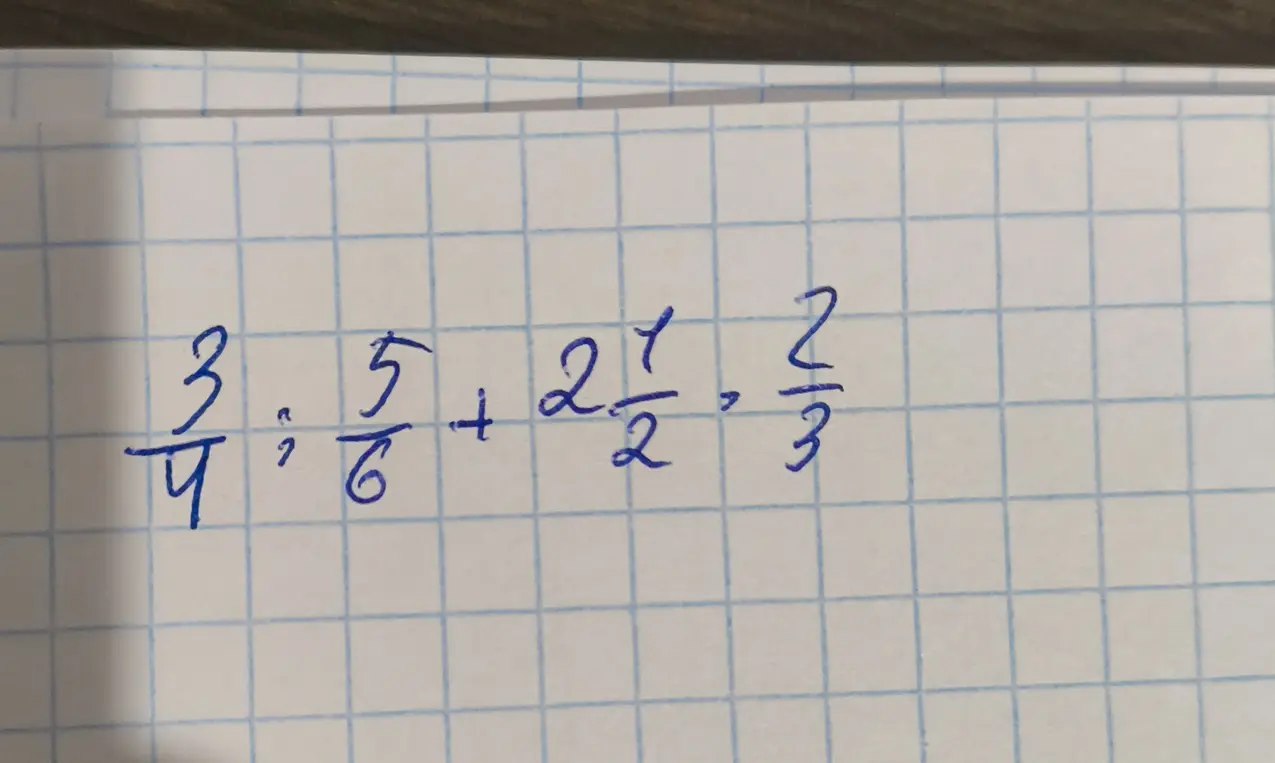 3/4 : 5/6 + 2 1/2 · 2/3